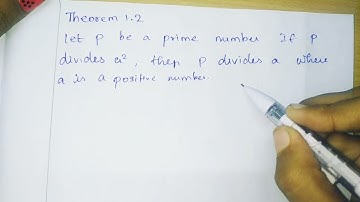 Theorem 1.2
Let p be a prime number If p
divides a², then p divides a where
a is a positive number.